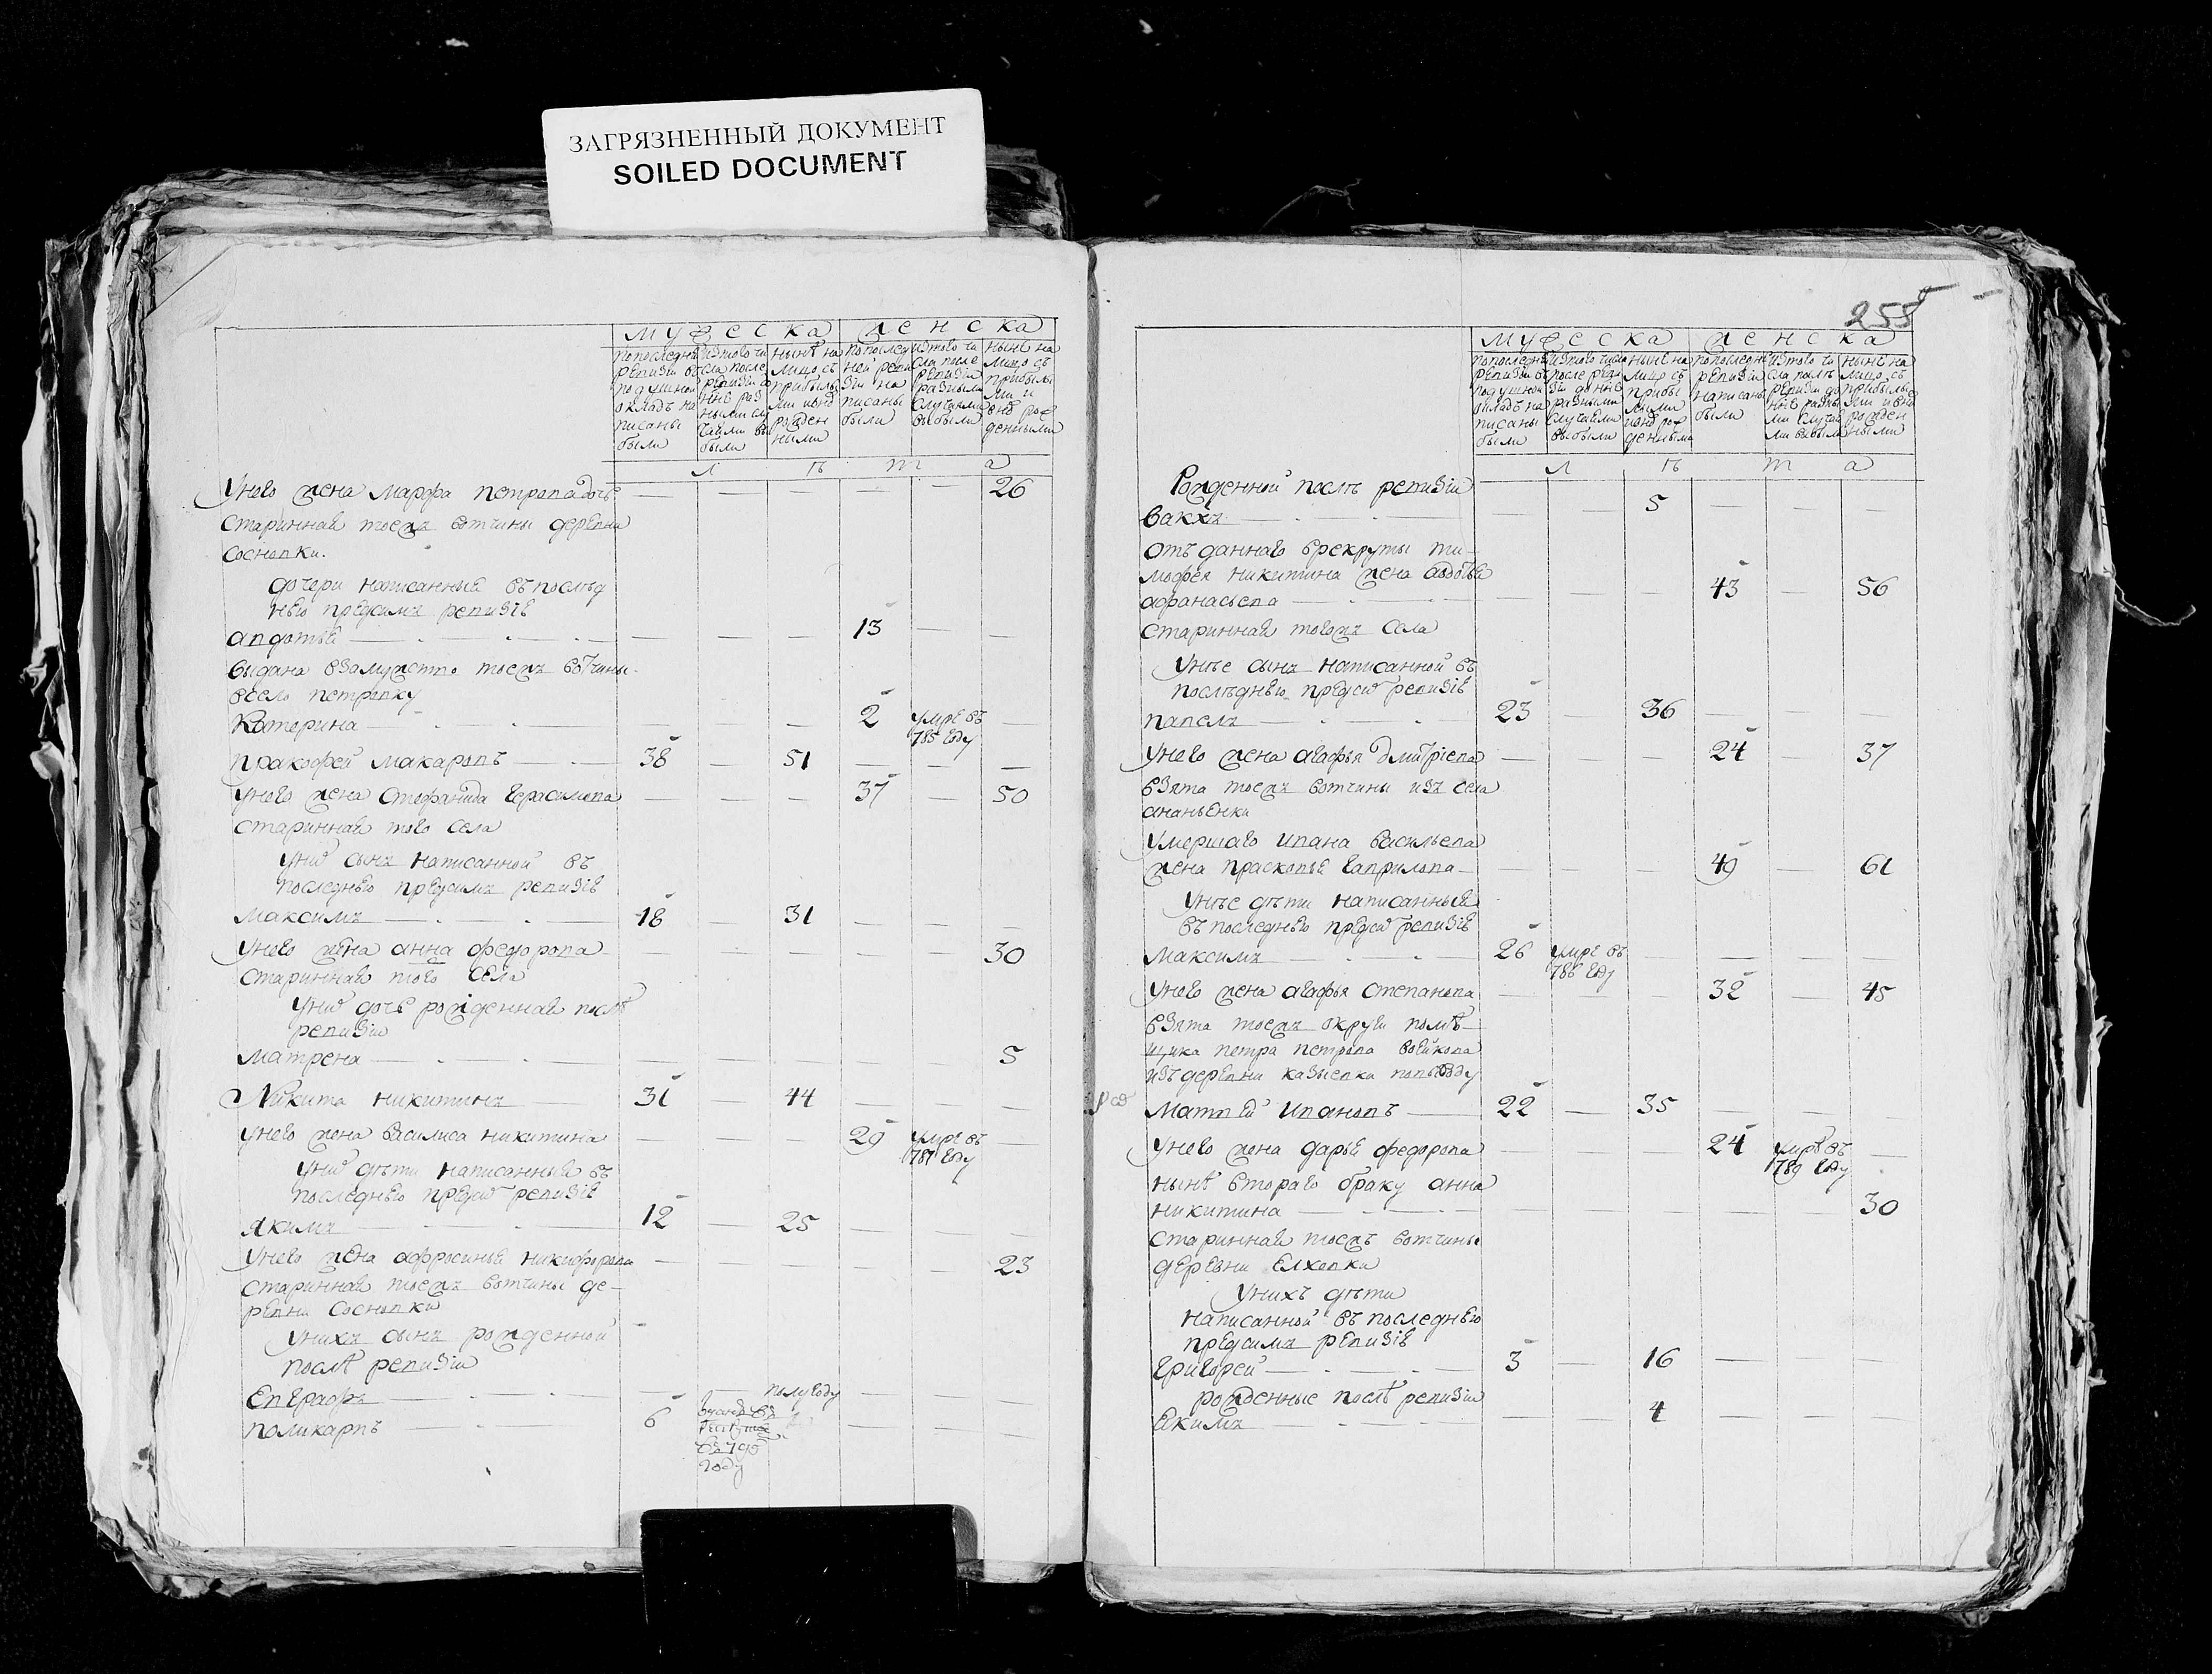 ЗАГРЯЗНЕННЫЙ ДОКУМЕНТ
SOILED DOCUMENT
мужеска женска
По последней ревизии въ подушной окладъ написаны были
Изъ того числа после ревизии до ныне разными случаями выбыли
Ныне на лицо съ прибылыми и вновь рожденными
По последней ревизии написаны были
Изъ того числа после ревизии разными случаями выбыли
Ныне на лицо съ прибылыми и вновь рожденными
лѣта
У него жена Марфа Петрова дочь — — — — — 26
старинная тоежъ вотчины деревни
Сосновки.
дочери написанные въ послѣд
нею предъ симъ ревизiе
Авдотья — — — 13 —
выдана взамужство тоежъ вотчины
всело Петровку
Катерина — — — 2 умре въ 785 году —
Пракофей Макаровъ 38 — 51 — — —
У него жена Стефанида Герасимова — — — 37 — 50
старинная того села
У них сынъ написанной въ
последнею предъ симъ ревизiе
Максимъ 18 — 31 — — —
У него жена Анна Федорова — — — — — 30
старинная того села
У них дочь рожденная послѣ
ревизiи
Матрена — — — — — 5
Никита Никитинъ 31 — 44 — — —
У него жена Василиса Никитина — — — 29 умре въ 787 году —
У них дѣти написанныя въ
последнею предъ сим ревизiе
Якимъ 12 — 25 — — —
У него жена Афросинья Никифорова — — — — — 23
старинная тоежъ вотчины де-
ревни Сосновки
У нихъ сынъ рожденной
послѣ ревизiи
Евграфъ — — полугоду — — —
Поликарпъ 6 въ 795 году — — —
255
мужеска женска
По последней ревизии въ подушной окладъ написаны были
Изъ того числа после ревизии до ныне разными случаями выбыли
Ныне на лицо съ прибылыми и вновь рожденными
По последней ревизии написаны были
Изъ того числа послѣ ревизии до ныне разными случаями выбыли
Ныне на лицо съ прибылыми и вновь рожденными
лѣта
Рожденной послѣ ревизiи
Вакхъ — — 5 — — —
Отъданнаго врекруты Ти-
мофея Никитина жена Авдотья
Афанасьева — — — 43 — 56
старинная тогожъ села
У нѣе сынъ написанной въ
послѣднею предъ сим ревизiе
Павелъ 23 — 36 — — —
У него жена Агафья Дмитрiева — — — 24 — 37
взята тоежъ вотчины изъ села
Ананьенки
Умершаго Ивана Васильева
жена Прасковья Гаврилова — — — 49 — 61
У нѣе дѣти написанныя
въ последнею предъ сим ревизiе
Максимъ 26 умре въ 786 году — — — —
У него жена Агафья Степанова — — — 32 — 45
взята тоежъ округи помѣ-
щика Петра Петрова Воейкова
изъ деревни Казыевки поповоду
Матвей Ивановъ 22 — 35 — — —
У него жена Дарья Федорова — — — 24 умре въ 789 году —
нынѣ втораго браку Анна
Никитина — — — — — 30
старинная тоежъ вотчины
деревни Елховки
У нихъ дѣти
написанной въ последнею
предъ симъ ревизiе
Григорей 3 — 16 — — —
рожденные послѣ ревизiи
Екимъ — — 4 — —